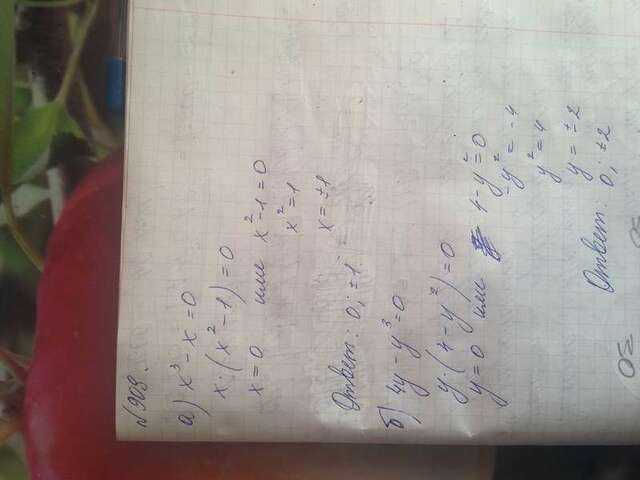 № 908.
а) x³ - x = 0
x · (x² - 1) = 0
x = 0 или x² - 1 = 0
x² = 1
x = ±1
Ответ: 0; ±1.
б) 4y - y³ = 0
y · (4 - y²) = 0
y = 0 или 4 - y² = 0
-y² = -4
y² = 4
y = ±2
Ответ: 0; ±2